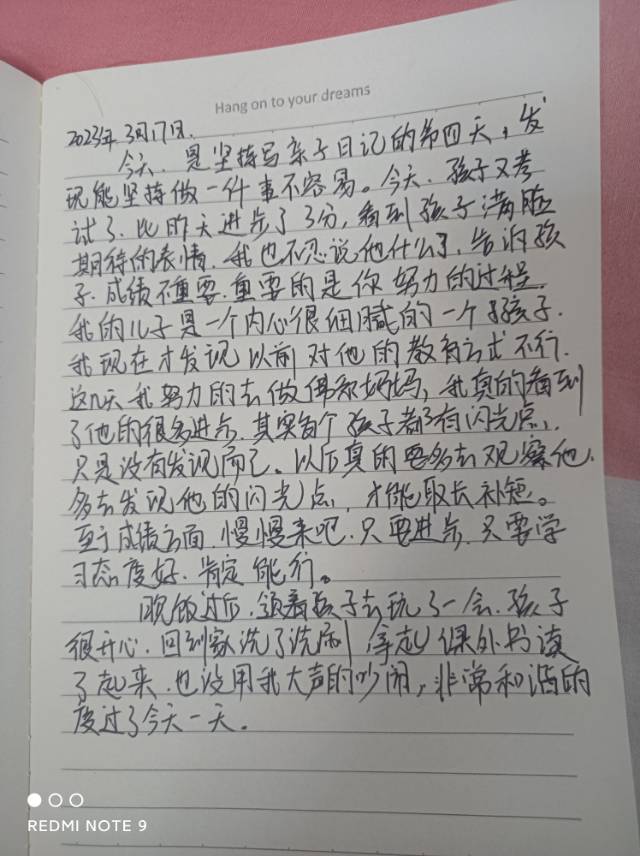 Hang on to your dreams
2023年3月17日.
今天.是坚持写亲子日记的第四天,发
现能坚持做一件事不容易。今天.孩子又考
试了.比昨天进步了3分,看到孩子满脸
期待的表情.我也不忍说他什么了.告诉孩
子.成绩不重要.重要的是你努力的过程.
我的儿子是一个内心很细腻的一个孩子.
我现在才发现以前对他的教育方式不行.
这几天我努力的去做偶和妈妈,我真的看到
了他的很多进步.其实每个孩子都有闪光点,
只是没有发现而已.以后真的要多去观察他.
多去发现他的闪光点.才能取长补短。
至于成绩方面.慢慢来吧.只要进步.只要学
习态度好.肯定能行。
晚饭过后.领着孩子去玩了一会.孩子
很开心.回到家洗了洗脚 拿起课外书读
了起来.也没用我大声的吵闹,非常和谐的
度过了今天一天.
REDMI NOTE 9